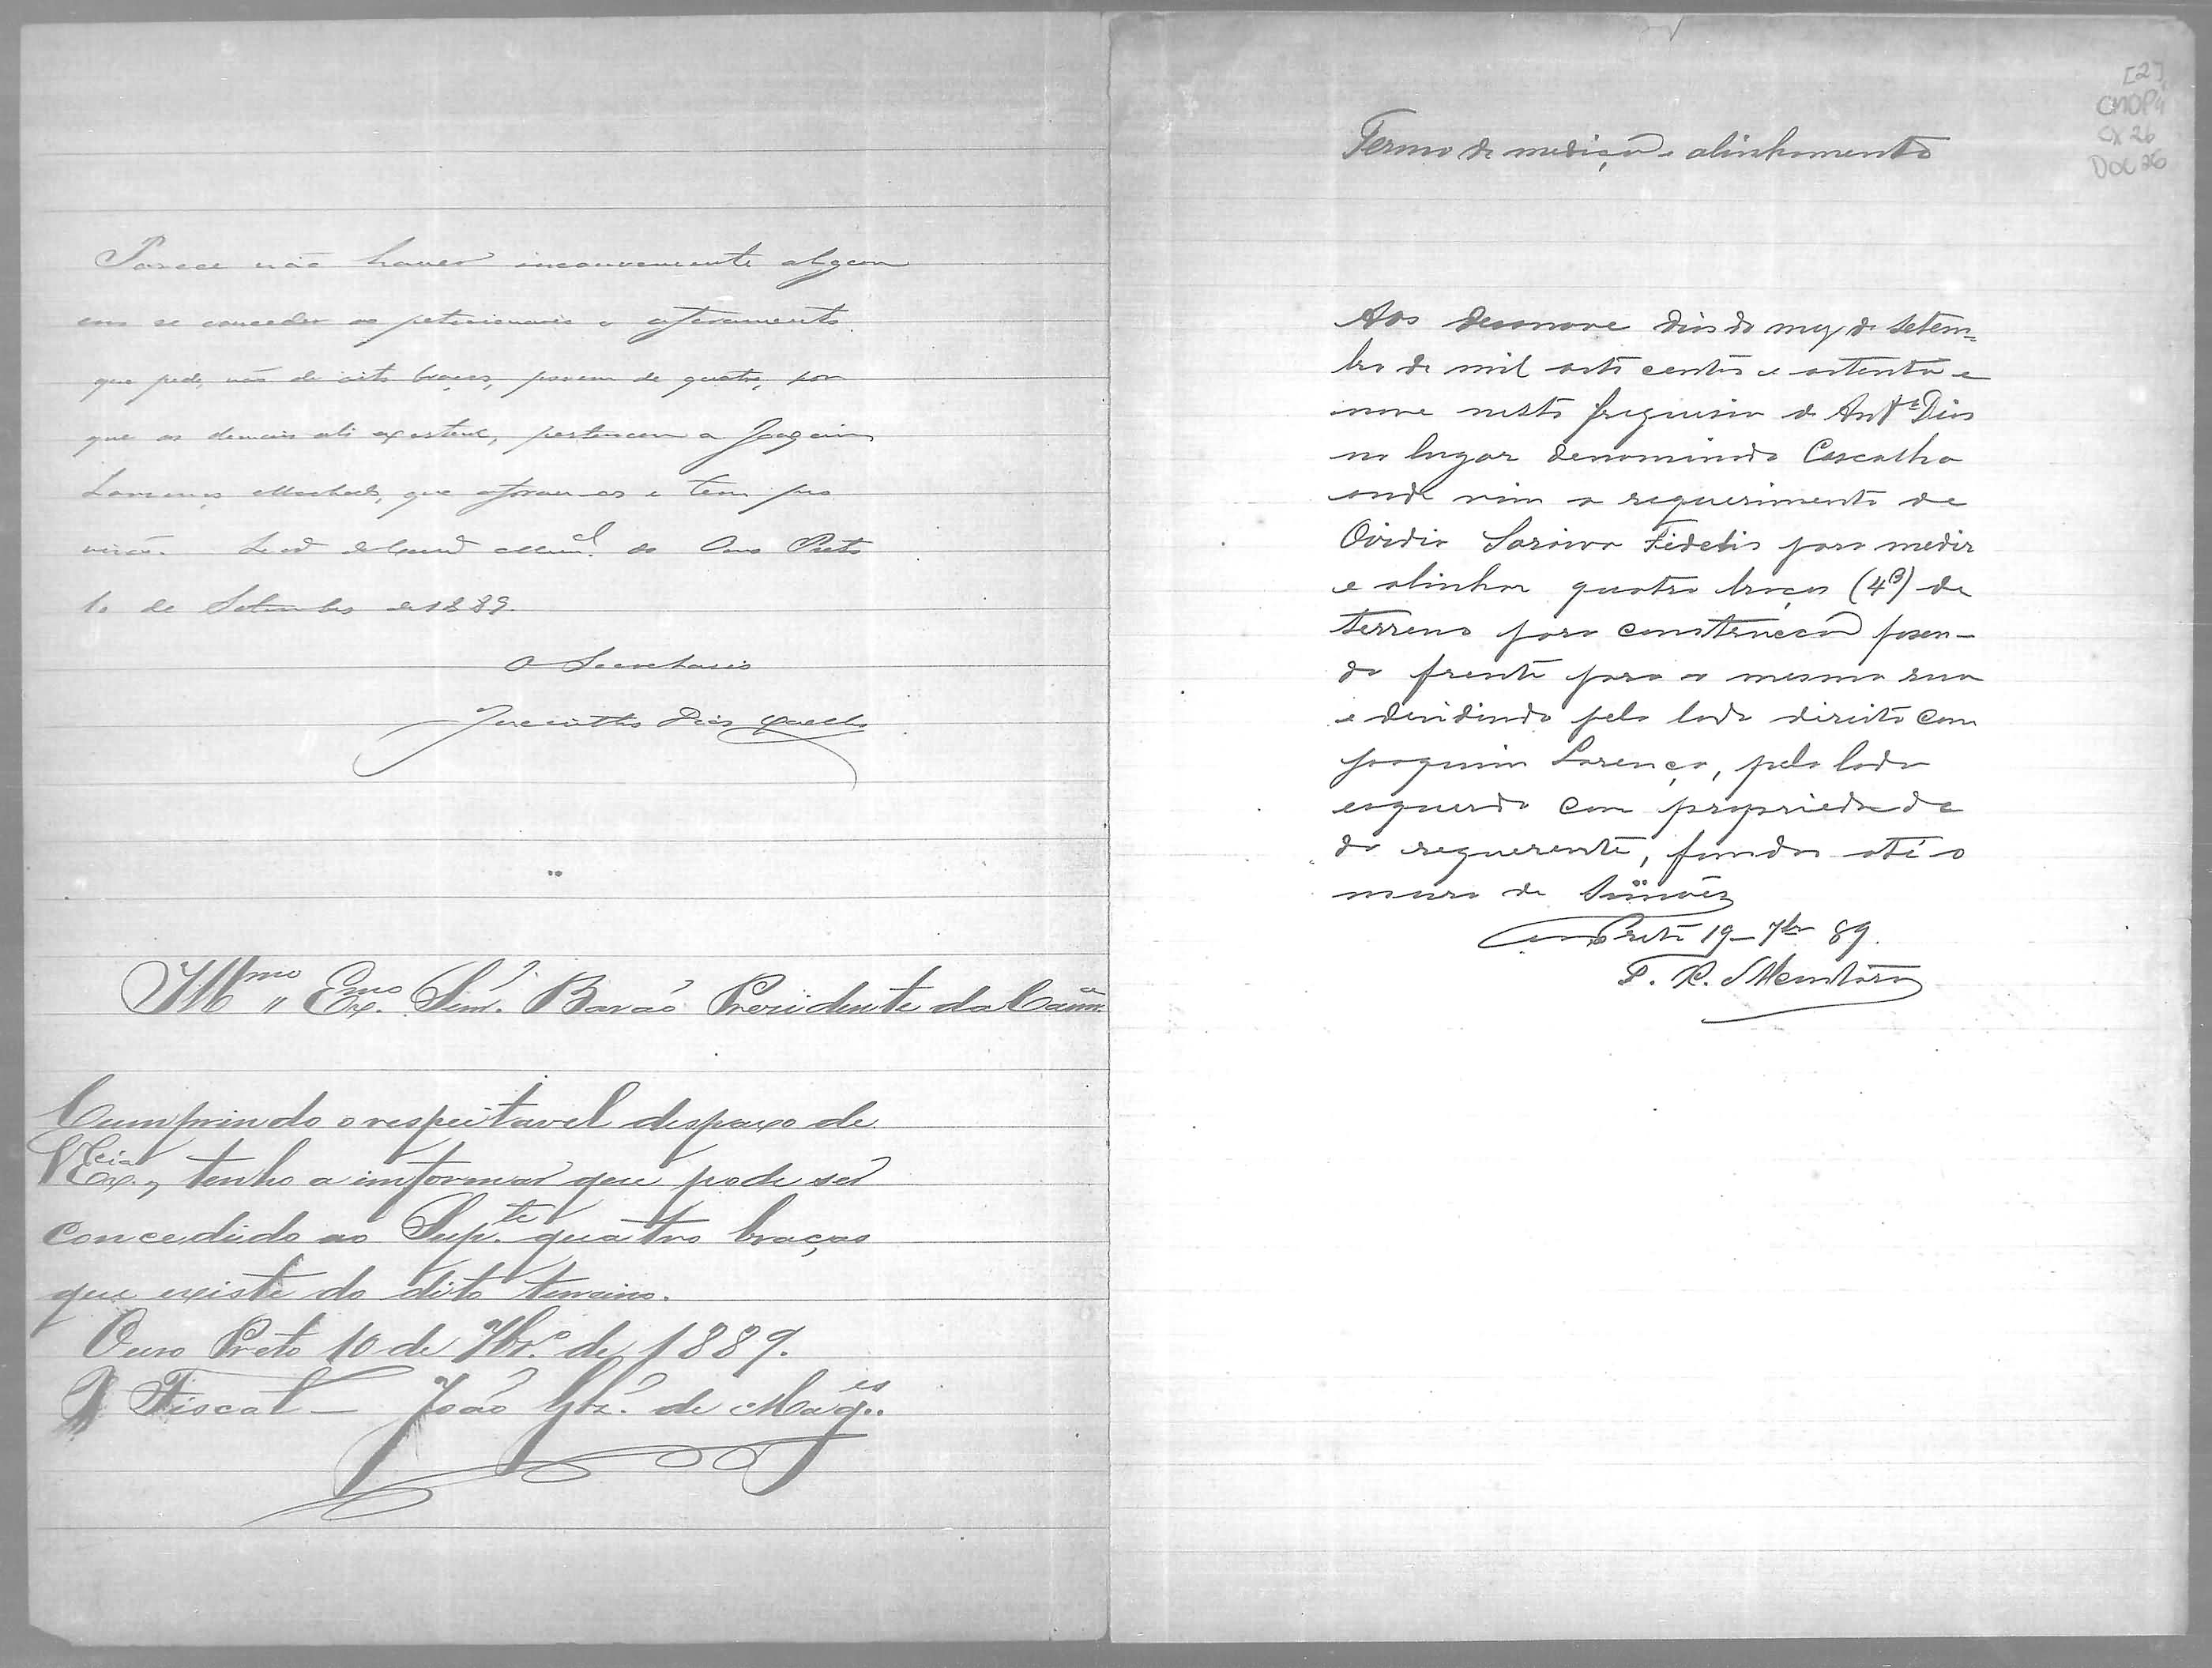 Parece não haver inconveniente algum
em se conceder ao peticionario o aforamento
que pede, não de oito braças, porem de quatro, por
que as demais ali existente, pertencem a Joaquim
Lourenço Machado, que aforou-as e tem pro
visão. Secr. da Camr. Munal. do Ouro Preto
10 de Setembro de 1889.
O Secretario
Jacintho Dias
Illmo Exmo. Snr. Barão Presidente da Camra.
Cumprindo o respeitavel despaxo de
VExcia., tenho a imformar que pode ser
concedido ao Supte. quatro braças
que existe do dito terreino.
Ouro Preto 10 de 7br.o de 1889.
O Fiscal — João Glz. de Mages.
[2]
CMOP4
CX 26
DOC 26
Termo de medição e alinhamento
Aos desenove dias do mez de setem=
bro de mil oito centos e oitenta e
nove nesta freguesia de Antº Dias
no lugar denominado Cascalho
onde vim a requerimento de
Ovidio Saraiva Fidelis para medir
e alinhar quatro braças (4B) de
terreno para construcção fasen-
do frente para a mesma rua
e dividindo pelo lado direito com
Joaquim Lorenço, pelo lado
esquerdo com propriedade
do requerente, fundos até o
muro de Simões
Ouro Preto 19-7br 89.